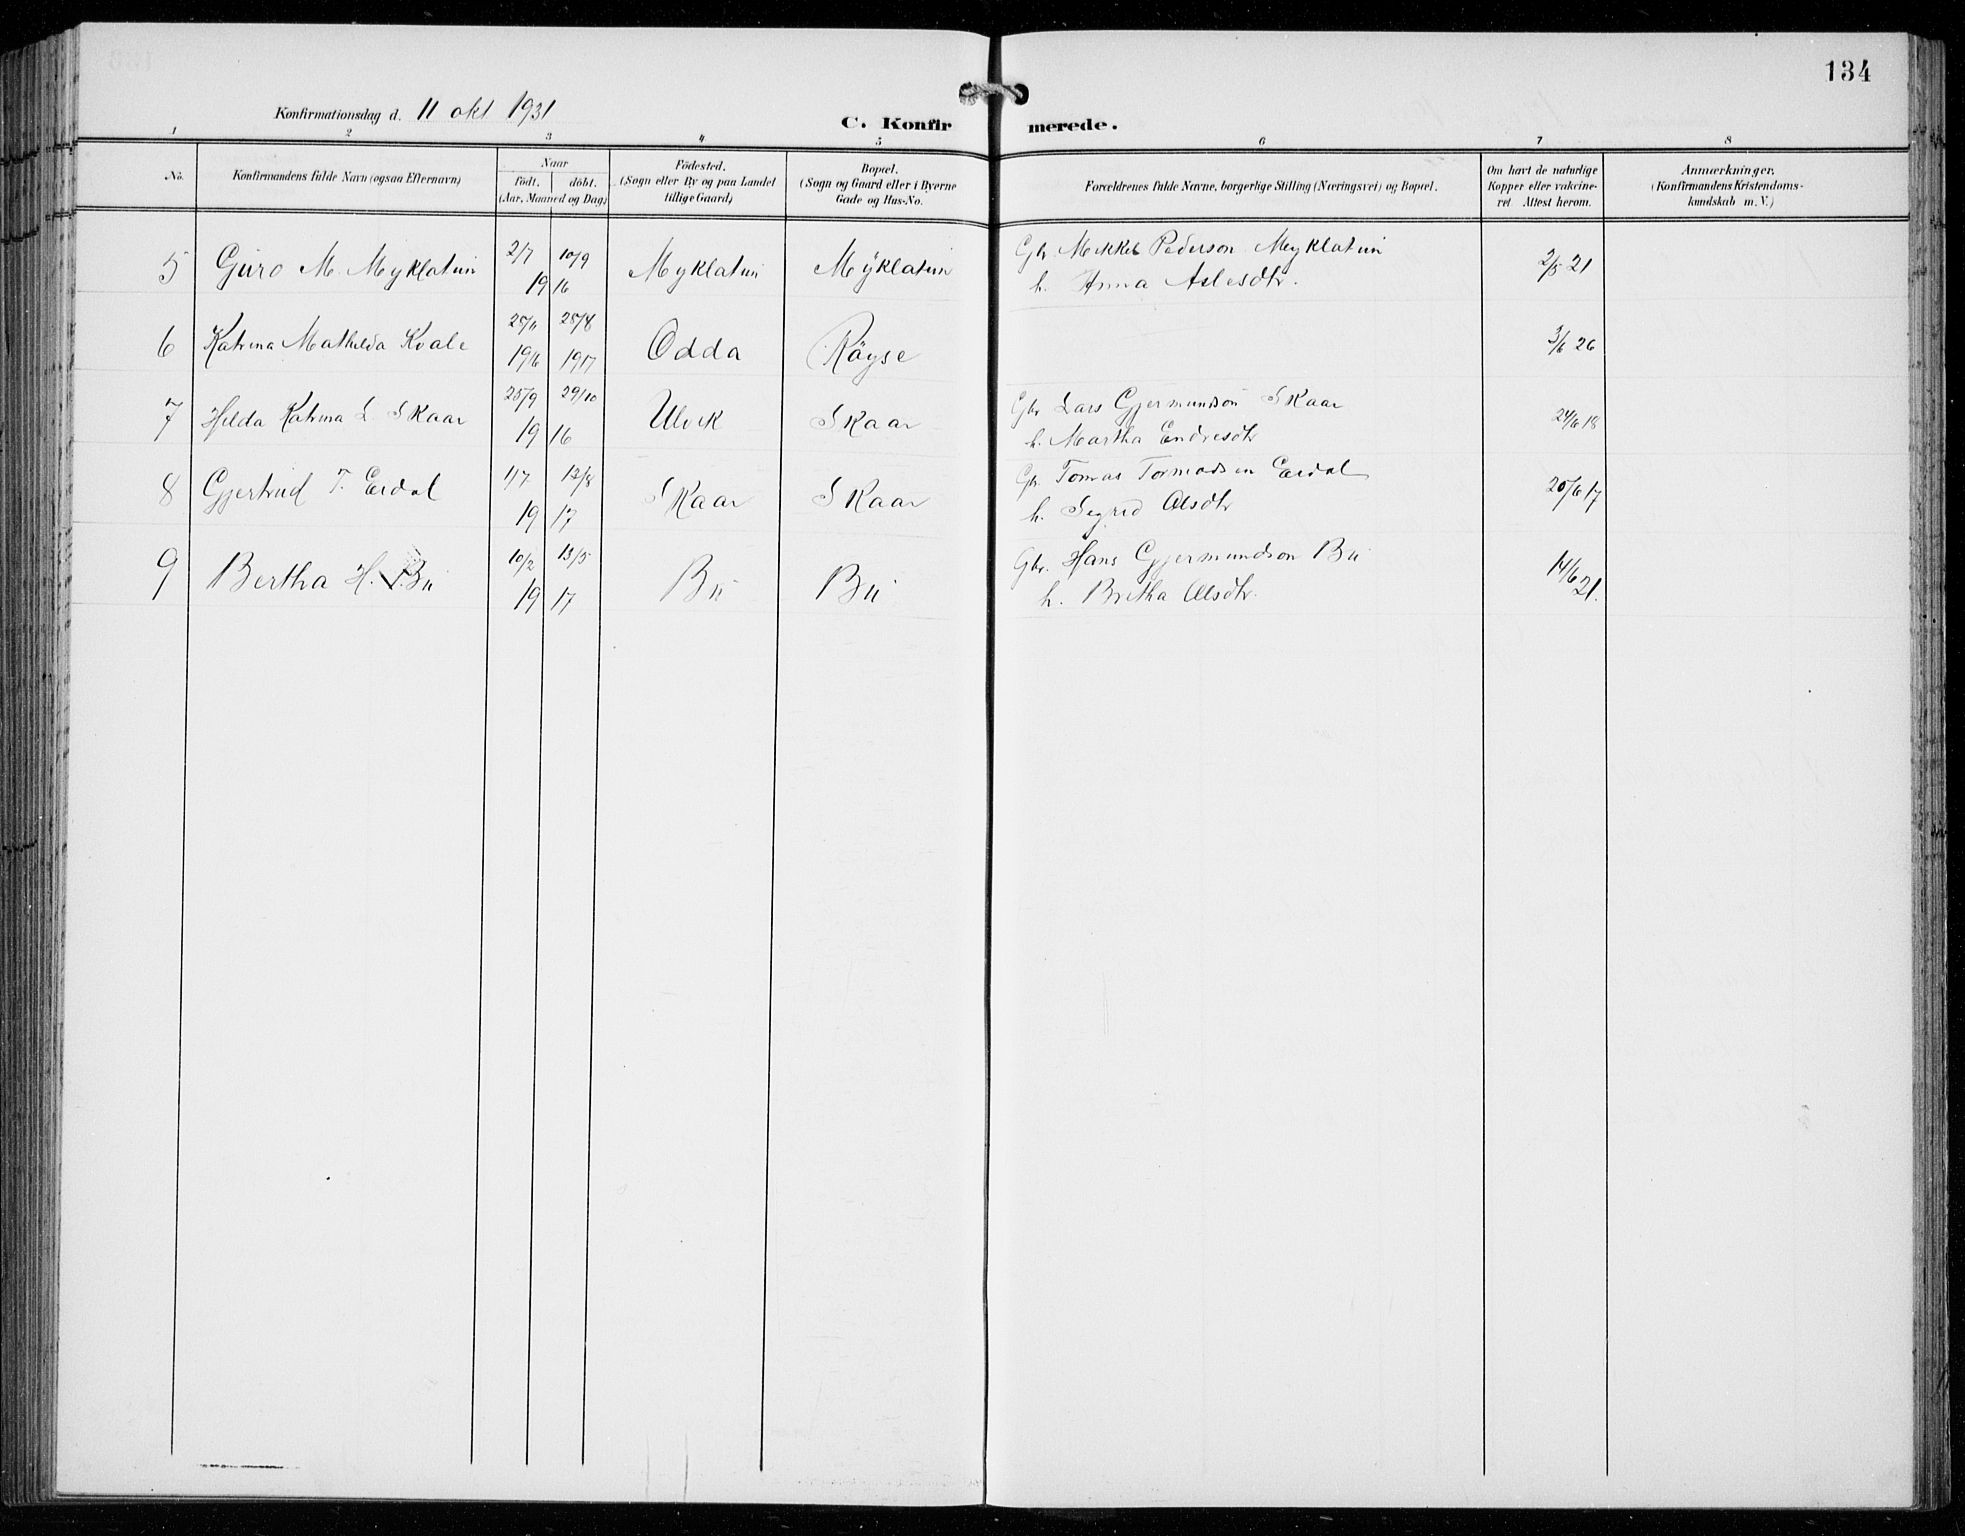 134
Konfirmationsdag d. 11 okt 1931
C. Konfirmerede.
1 2 3 4 5 6 7 8
No.
Konfirmandens fulde Navn (ogsaa Efternavn)
Naar
födt. döbt.
(Aar, Maaned og Dag)
Födested.
(Sogn eller By og paa Landet
tillige Gaard)
Bopæl.
(Sogn og Gaard eller i Byerne
Gade og Hus-No.
Forældrenes fulde Navne, borgerlige Stilling (Næringsvei) og Bopæl.
Om havt de naturlige
Kopper eller vakcine-
ret. Attest herom.
Anmærkninger.
(Konfirmandens Kristendoms-
kundskab m. V.)
5 Guro M. Myklatun 2/7 10/9 Myklatun Myklatun Gbr. Mikkel Pederson Myklatun 2/5 21
19 16 h. Anna Aslesdtr.
6 Katrina Mathilda Kvale 28/11 28/8 Odda Röyse 3/6 26
1916 1917
7 Hilda Katrina L. Skaar 25/9 29/10 Ulvik Skaar Gbr Lars Gjermundson Skaar 24/6 18
19 16 h. Martha Endresdtr
8 Gjertrud T. Eidal 1/7 12/8 Skaar Skaar Gbr. Tomas Tormodsen Eidal 20/6 17
19 17 h. Sigrid Olsdtr
9 Bertha H. Bu 10/2 13/5 Bu Bu Gbr. Hans Gjermundson Bu 14/6 21.
19 17 h. Britha Olsdtr.